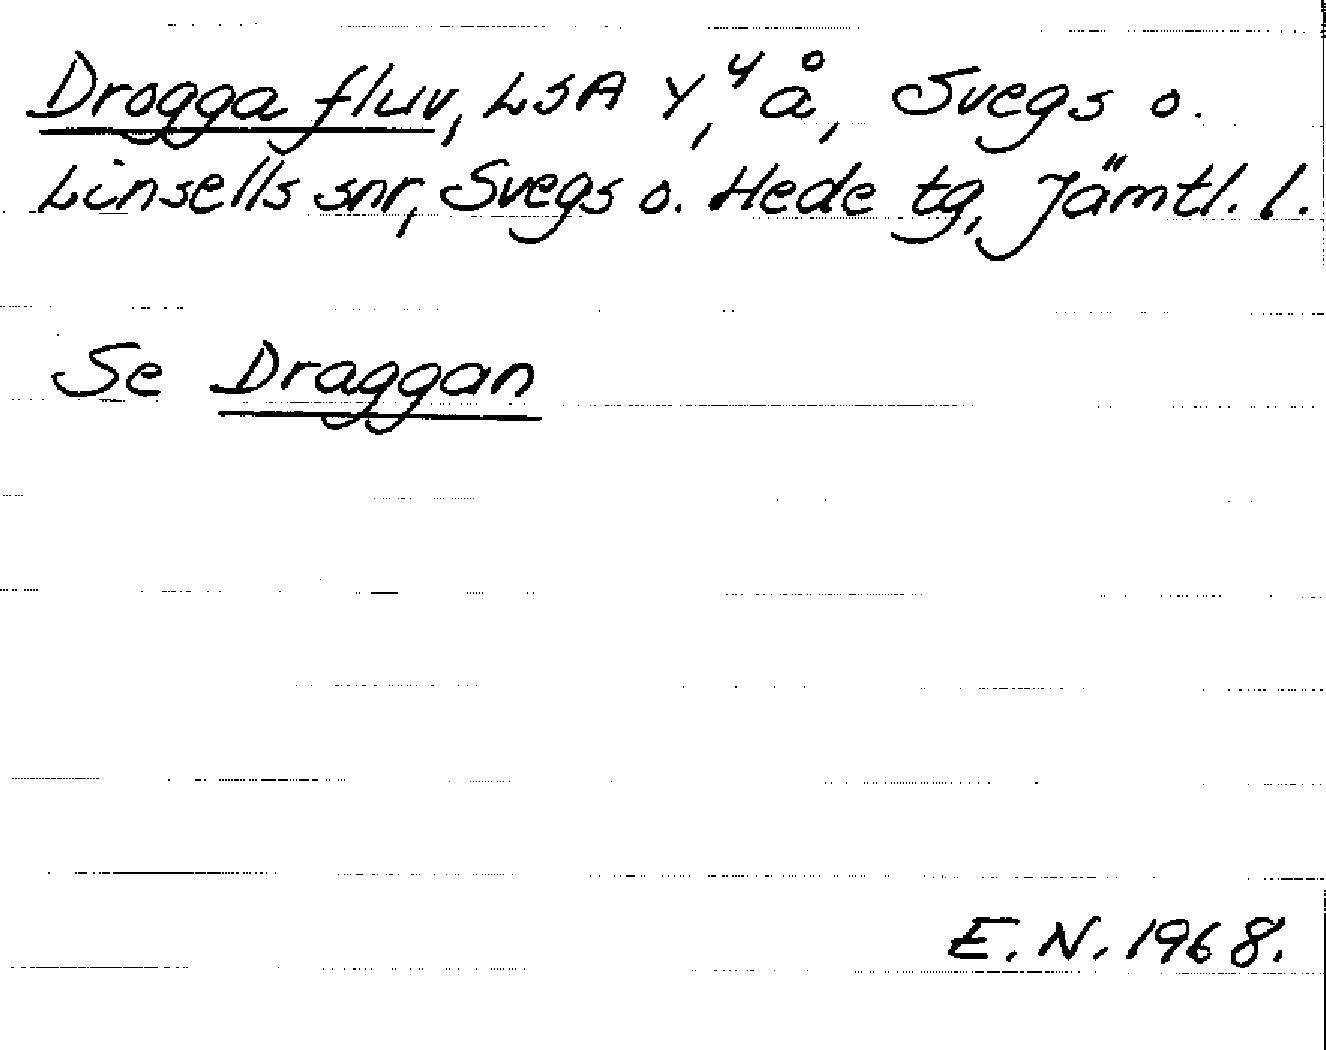 Drogga fluv, LSA Y,⁴ å, Svegs o.
Linsells snr, Svegs o. Hede tg, Jämtl. l.
Se Draggan
E. N. 1968.